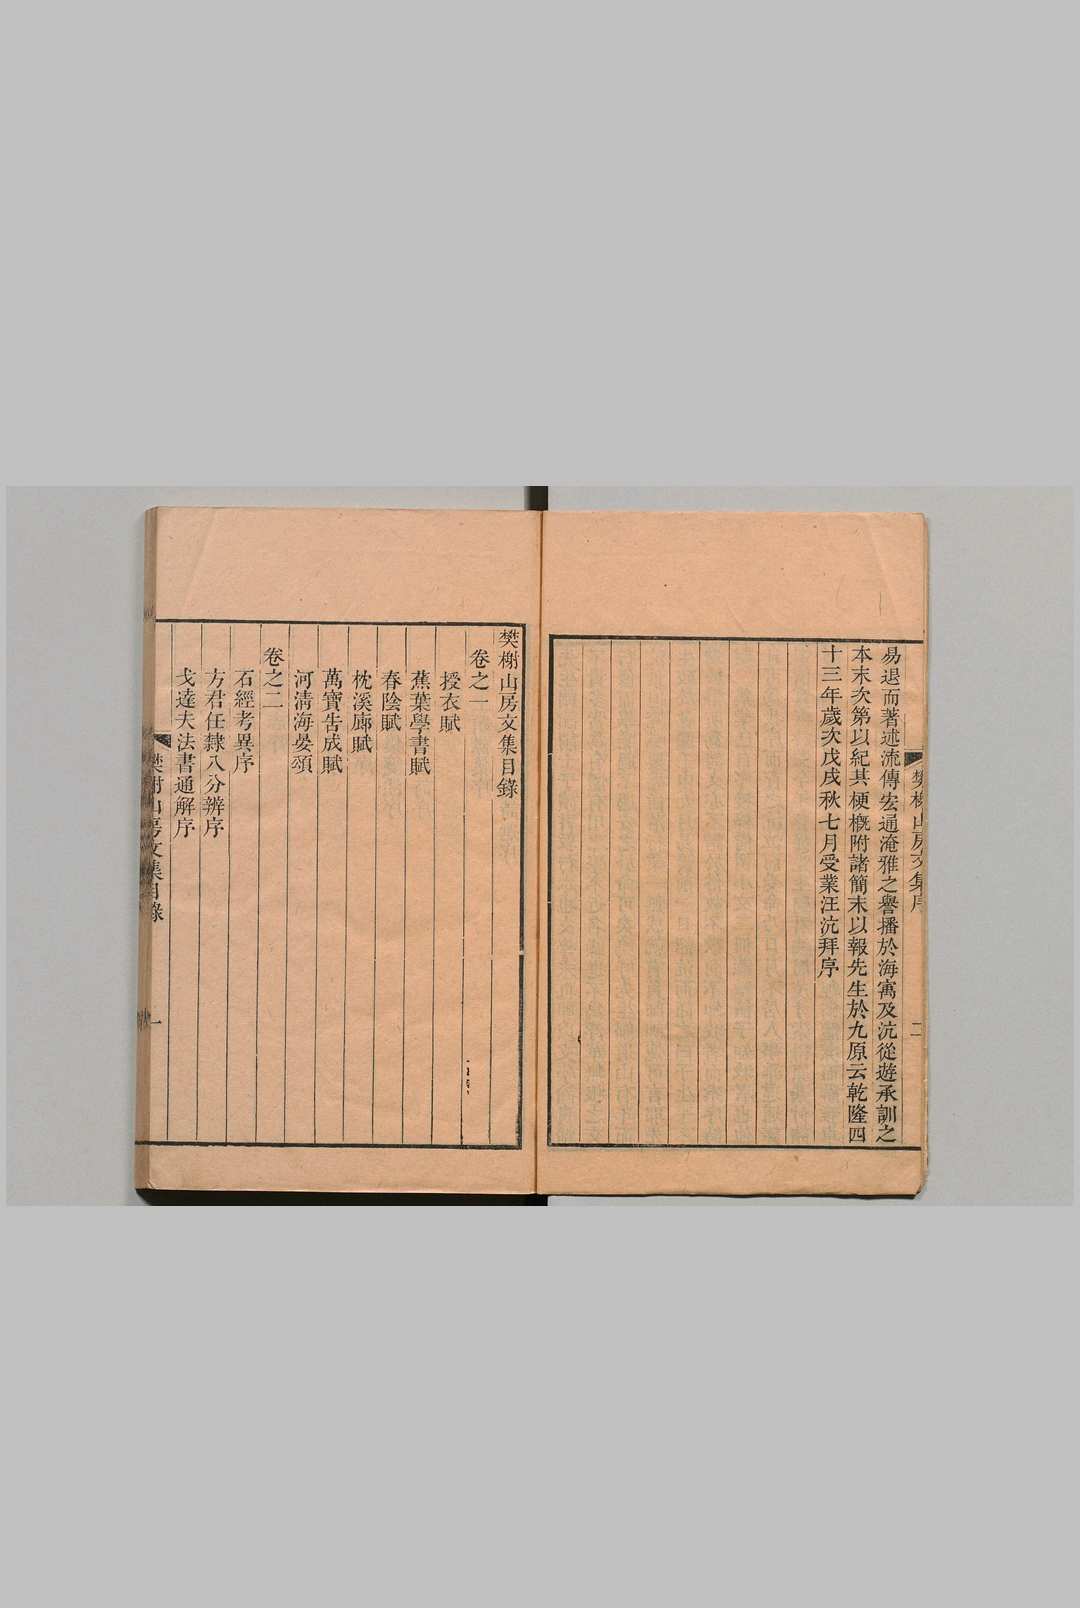 樊榭山房文集序
二
易退而著述流傳宏通淹雅之譽播於海寓及沆從遊承訓之
本末次第以紀其梗槪附諸簡末以報先生於九原云乾隆四
十三年歲次戊戌秋七月受業汪沆拜序
樊榭山房文集目錄
卷之一
授衣賦
蕉葉學書賦
春陰賦
枕溪廊賦
萬寶告成賦
河清海晏頌
卷之二
石經考異序
方君任隸八分辨序
戈達夫法書通解序
樊榭山房文集目錄
一